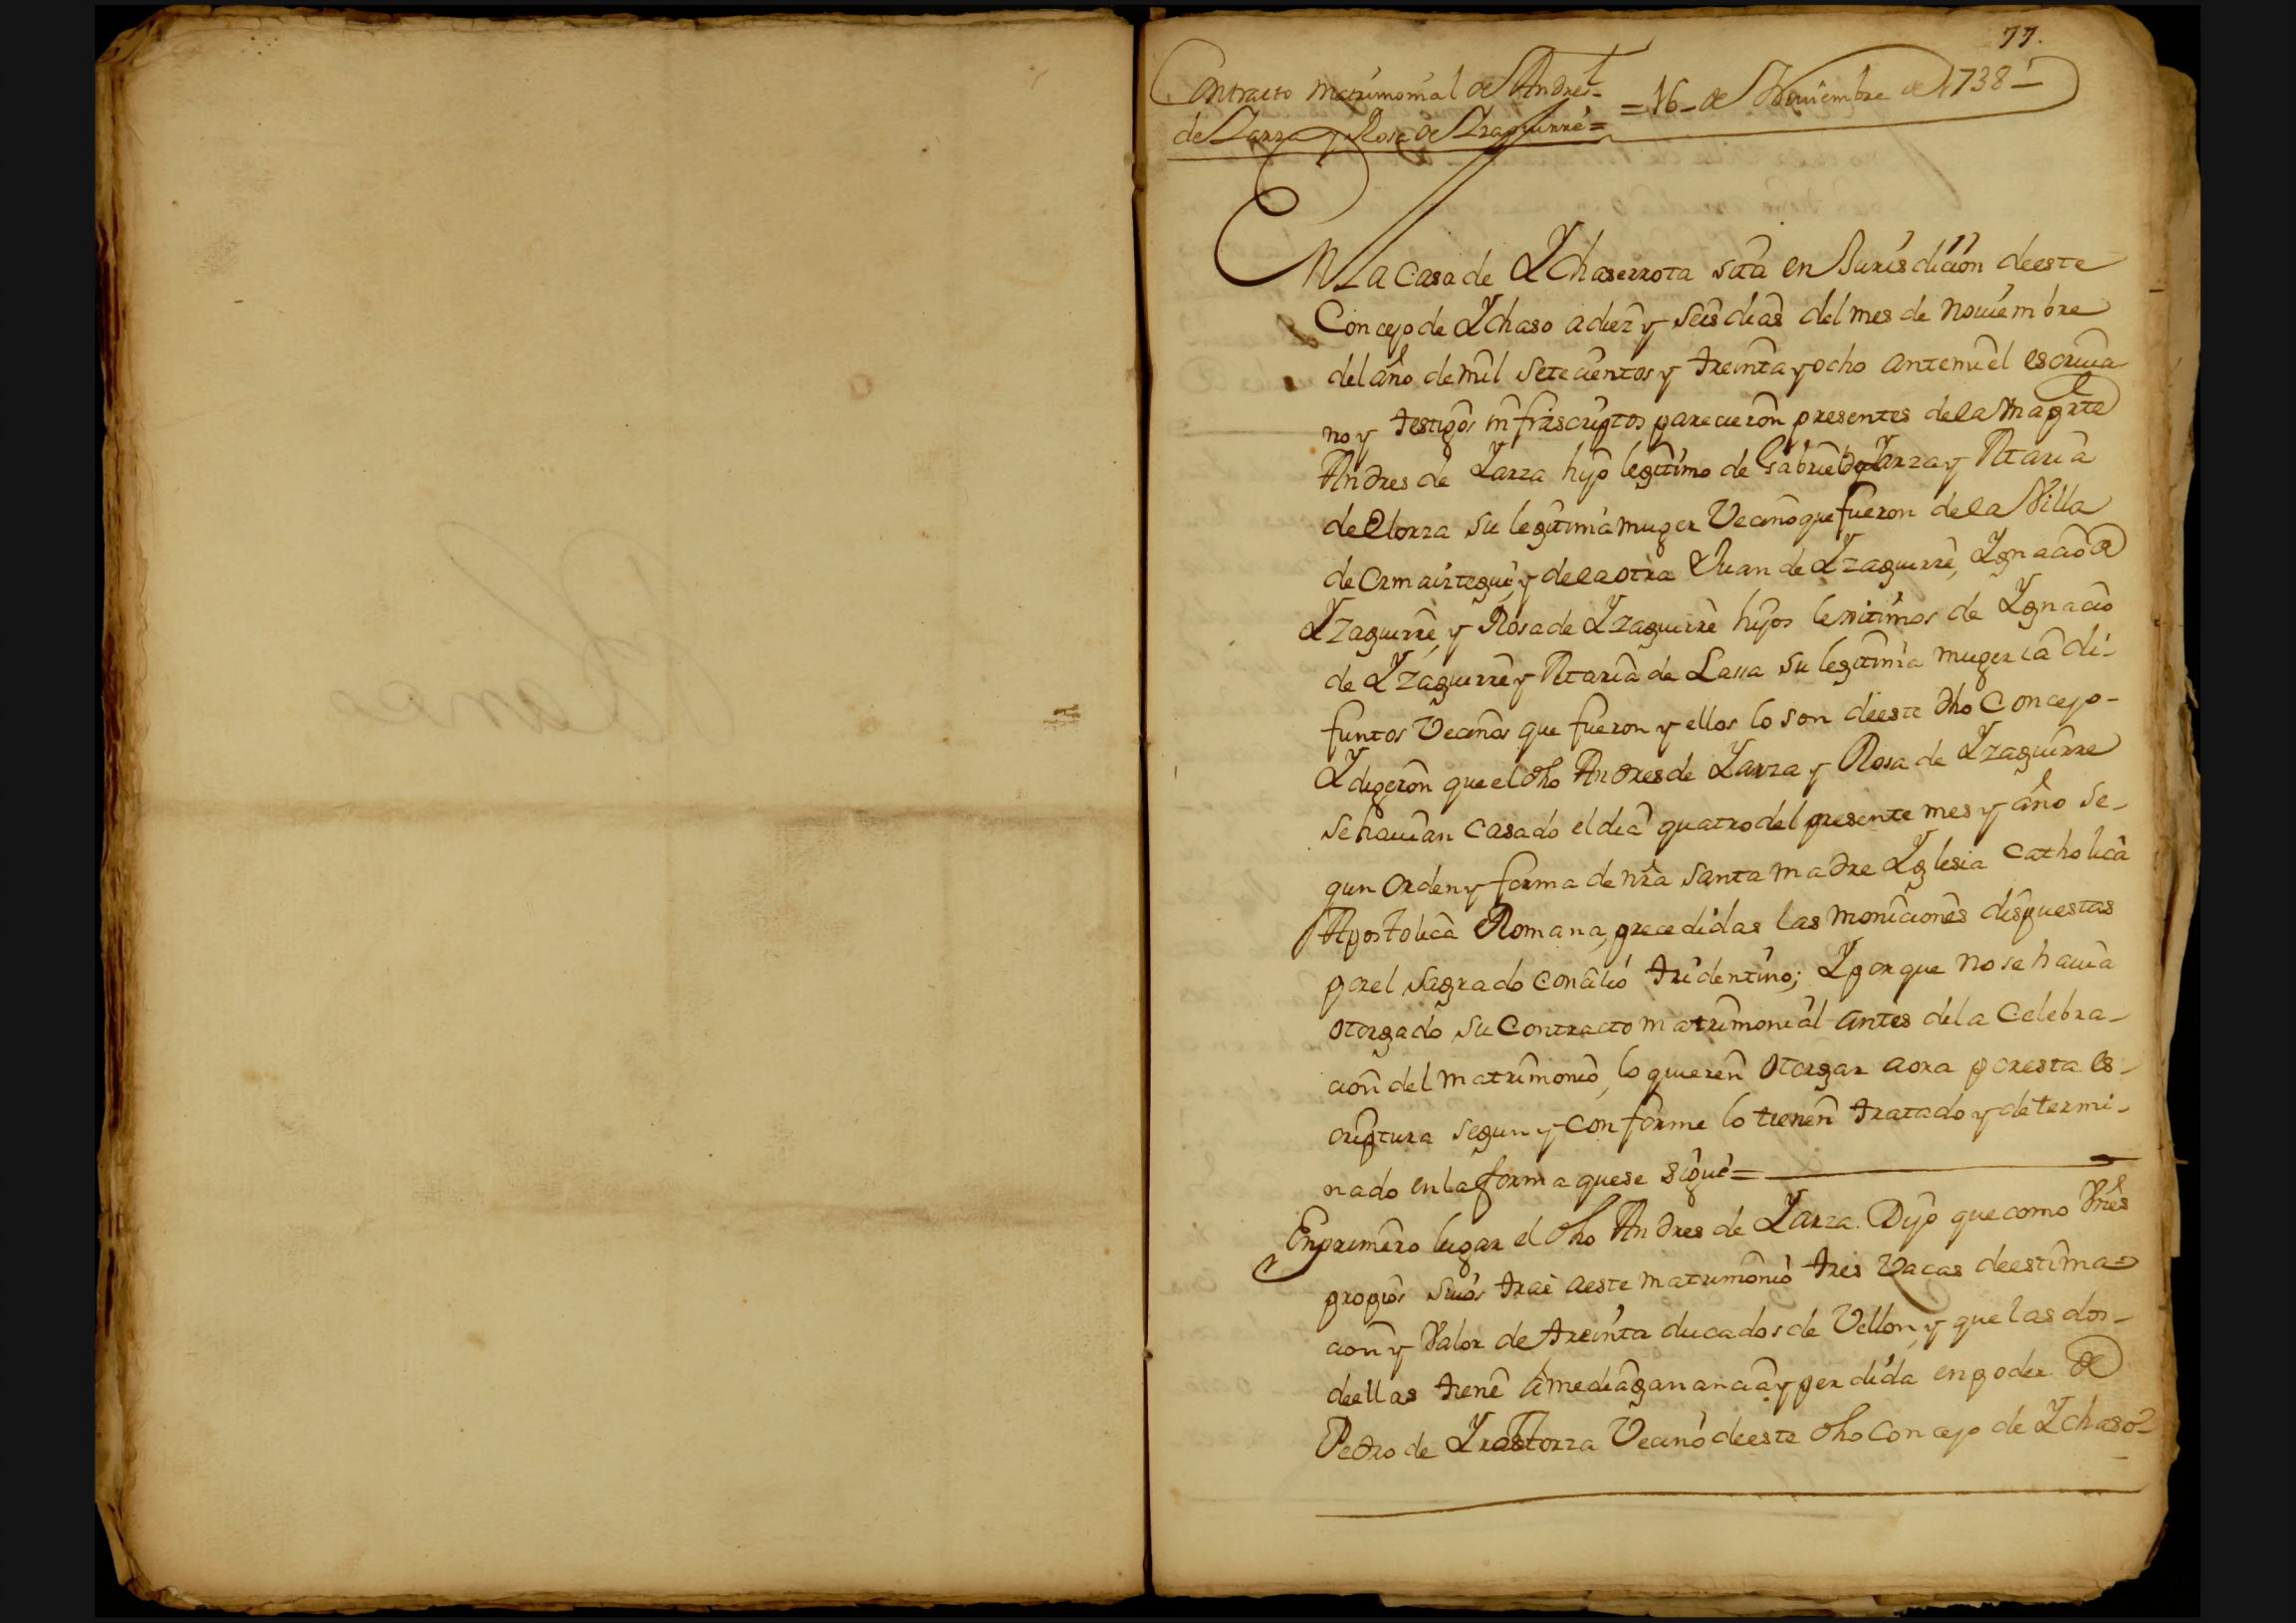 77.
Contracto matrimonial de Andres
de Yarza y Rosa de Yzaguirre =
= 16 - de Noviembre de 1738 -
En La Casa de Ychaserrota sita en Jurisdicion deeste
Concejo de Ychaso a diez y seis dias del mes de Noviembre
del año de mil setecientos y treinta y ocho antemi el escriva
no y testigos infrascriptos parecieron presentes dela una parte
Andres de Yarza hijo legitimo de Gabriel de Yarza y Maria
de Elorza su legitima muger Vecinos que fueron dela Villa
de Ormaiztegui, y dela otra Juan de Yzaguirre, Ygnacio de
Yzaguirre, y Rosa de Yzaguirre hijos lexitimos de Ygnacio
de Yzaguirre y Maria de Lasa su legitima muger ia di-
funtos Vecinos que fueron y ellos lo son deeste dho Concejo -
Y digeron que el dho Andres de Yarza y Rosa de Yzaguirre
se havian casado el dia quatro del presente mes y año se-
gun orden y forma de nra santa madre Yglesia catholica
Apostolica Romana, precedidas las moniciones dispuestas
por el sagrado concilio tridentino; Y porque no se havia
otorgado su Contracto matrimonial antes dela Celebra-
cion del matrimonio, lo quieren otorgar aora por esta es-
criptura segun y conforme lo tienen tratado y determi-
nado en la forma que se sigue =
En primero lugar el dho Andres de Yarza. Dijo que como Vnes
propios suios trae a este matrimonio tres Vacas de estima-
cion y Valor de treinta ducados de Vellon, y que las dos -
de ellas tiene a media ganancia y perdida en poder de
Pedro de Yrastorza Vecino deeste dho Concejo de Ychaso -